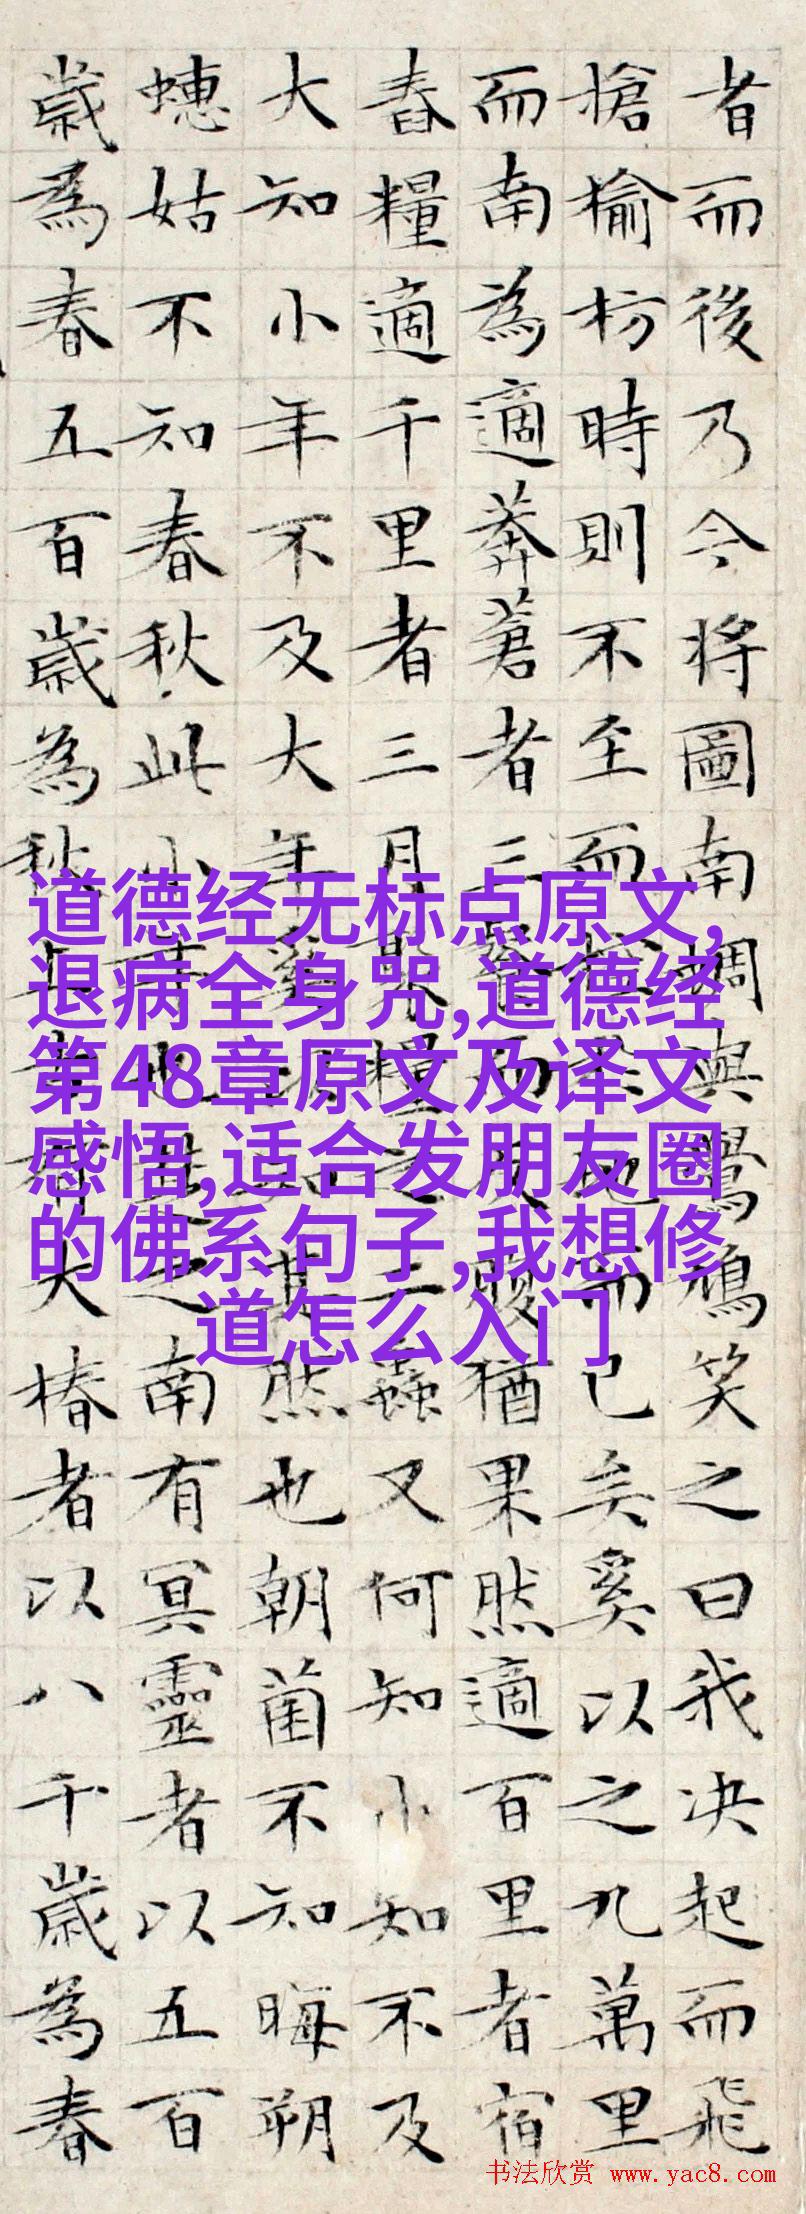 者而後乃今将圖南蜩與鷽鳩笑之曰我决起而飛
搶榆枋時則不至而控於地而已矣奚以之九萬里
而南為適莽蒼者三飡而反腹猶果然適百里者宿
舂糧適千里者三月聚糧之二蟲又何知小知不及
大知小年不及大年奚以知其然也朝菌不知晦朔
蟪姑不知春秋此小年也楚之南有冥靈者以五百
歲為春五百歲為秋上古有大椿者以八千歲為春
道德经无标点原文,
退病全身咒,道德经
第48章原文及译文
感悟,适合发朋友圈
的佛系句子,我想修
道怎么入门
书法欣赏 www.yac8.com